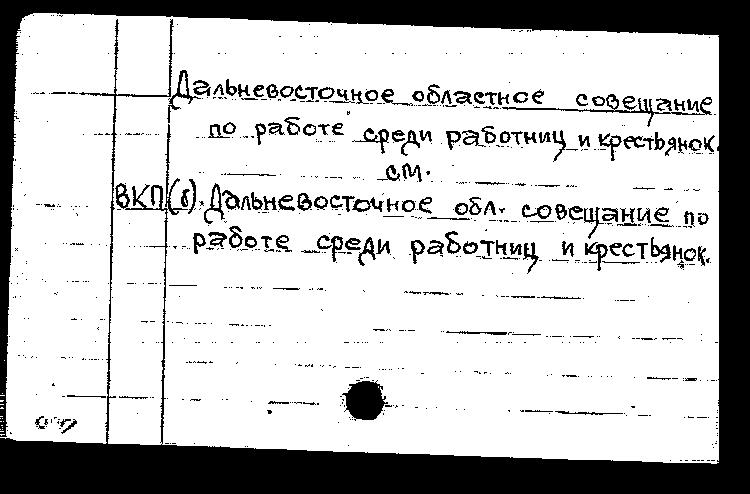 Дальневосточное областное совещание
по работе среди работниц и крестьянок.
см.
ВКП(б). Дальневосточное обл. совещание по
работе среди работниц и крестьянок.